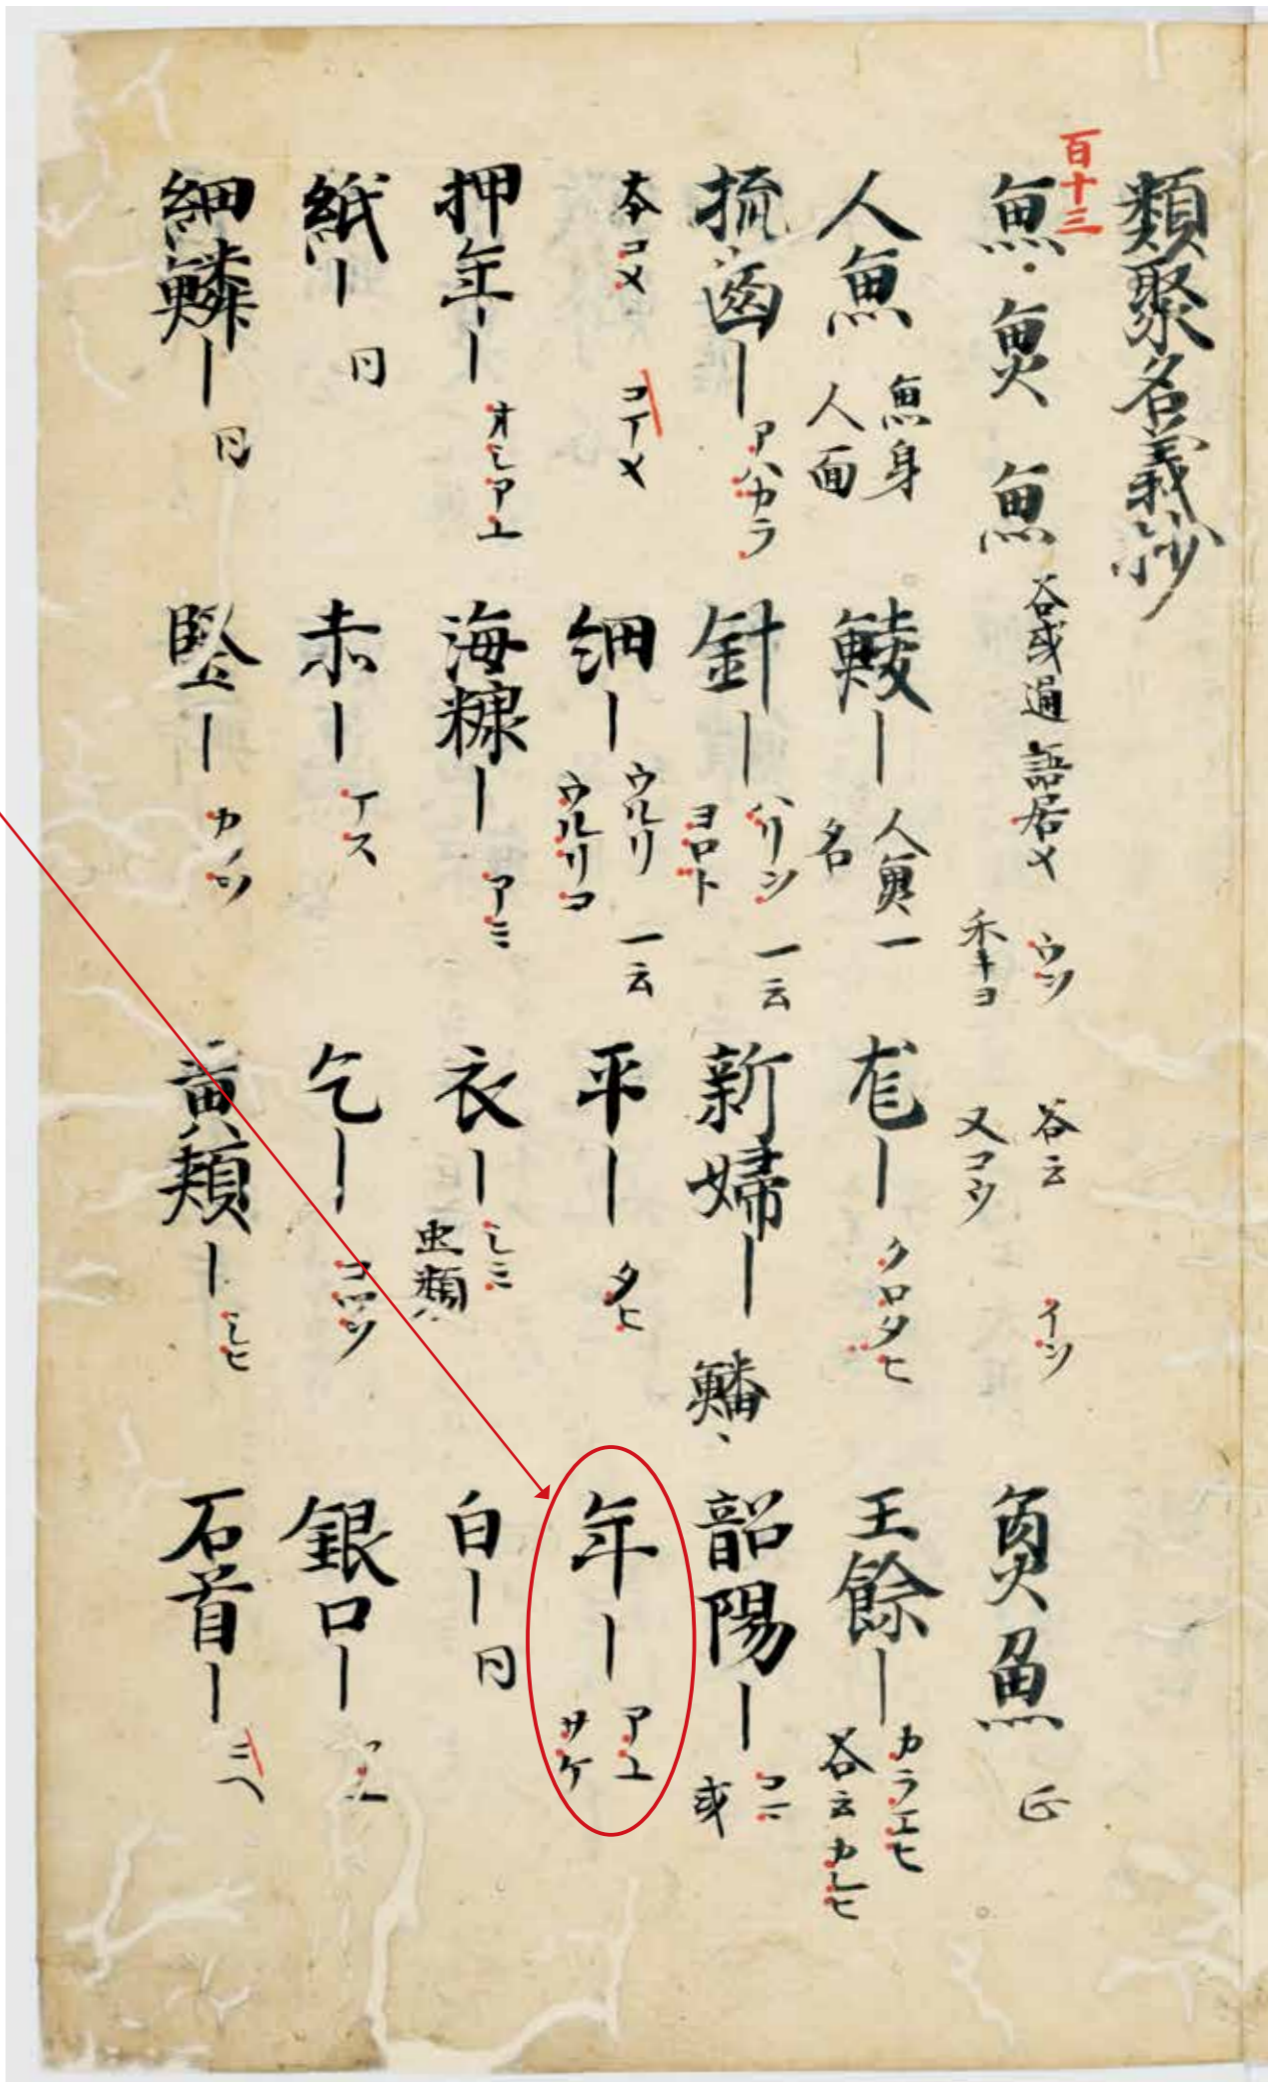 類聚名義抄
百十三
魚・𩵋 魚 谷或通 語居メ ウヲ 禾キヨ 谷云 又コヲ イヲ 魚 正
人魚 魚身 人面 鯪ー 人魚一 名 尨ー クロタヒ 王餘ー カラエヒ 谷云カレヒ
梳齒ー アハカラ 針ー ハリヲ 一云 ヨロト 新婦ー 鱕、 韶陽ー コニ 或
本コメ コイメ 細ー ウルリ 一云 ウルリコ 平ー タヒ 年ー アユ サケ
押年ー オシアユ 海糠ー アミ 衣ー シミ 虫類 白ー 同
紙ー 同 赤ー アス 乞ー コツヲ 銀口ー
細鱗ー 同 竪ー カツヲ 黄頬ー シヒ 石首ー ニヘ